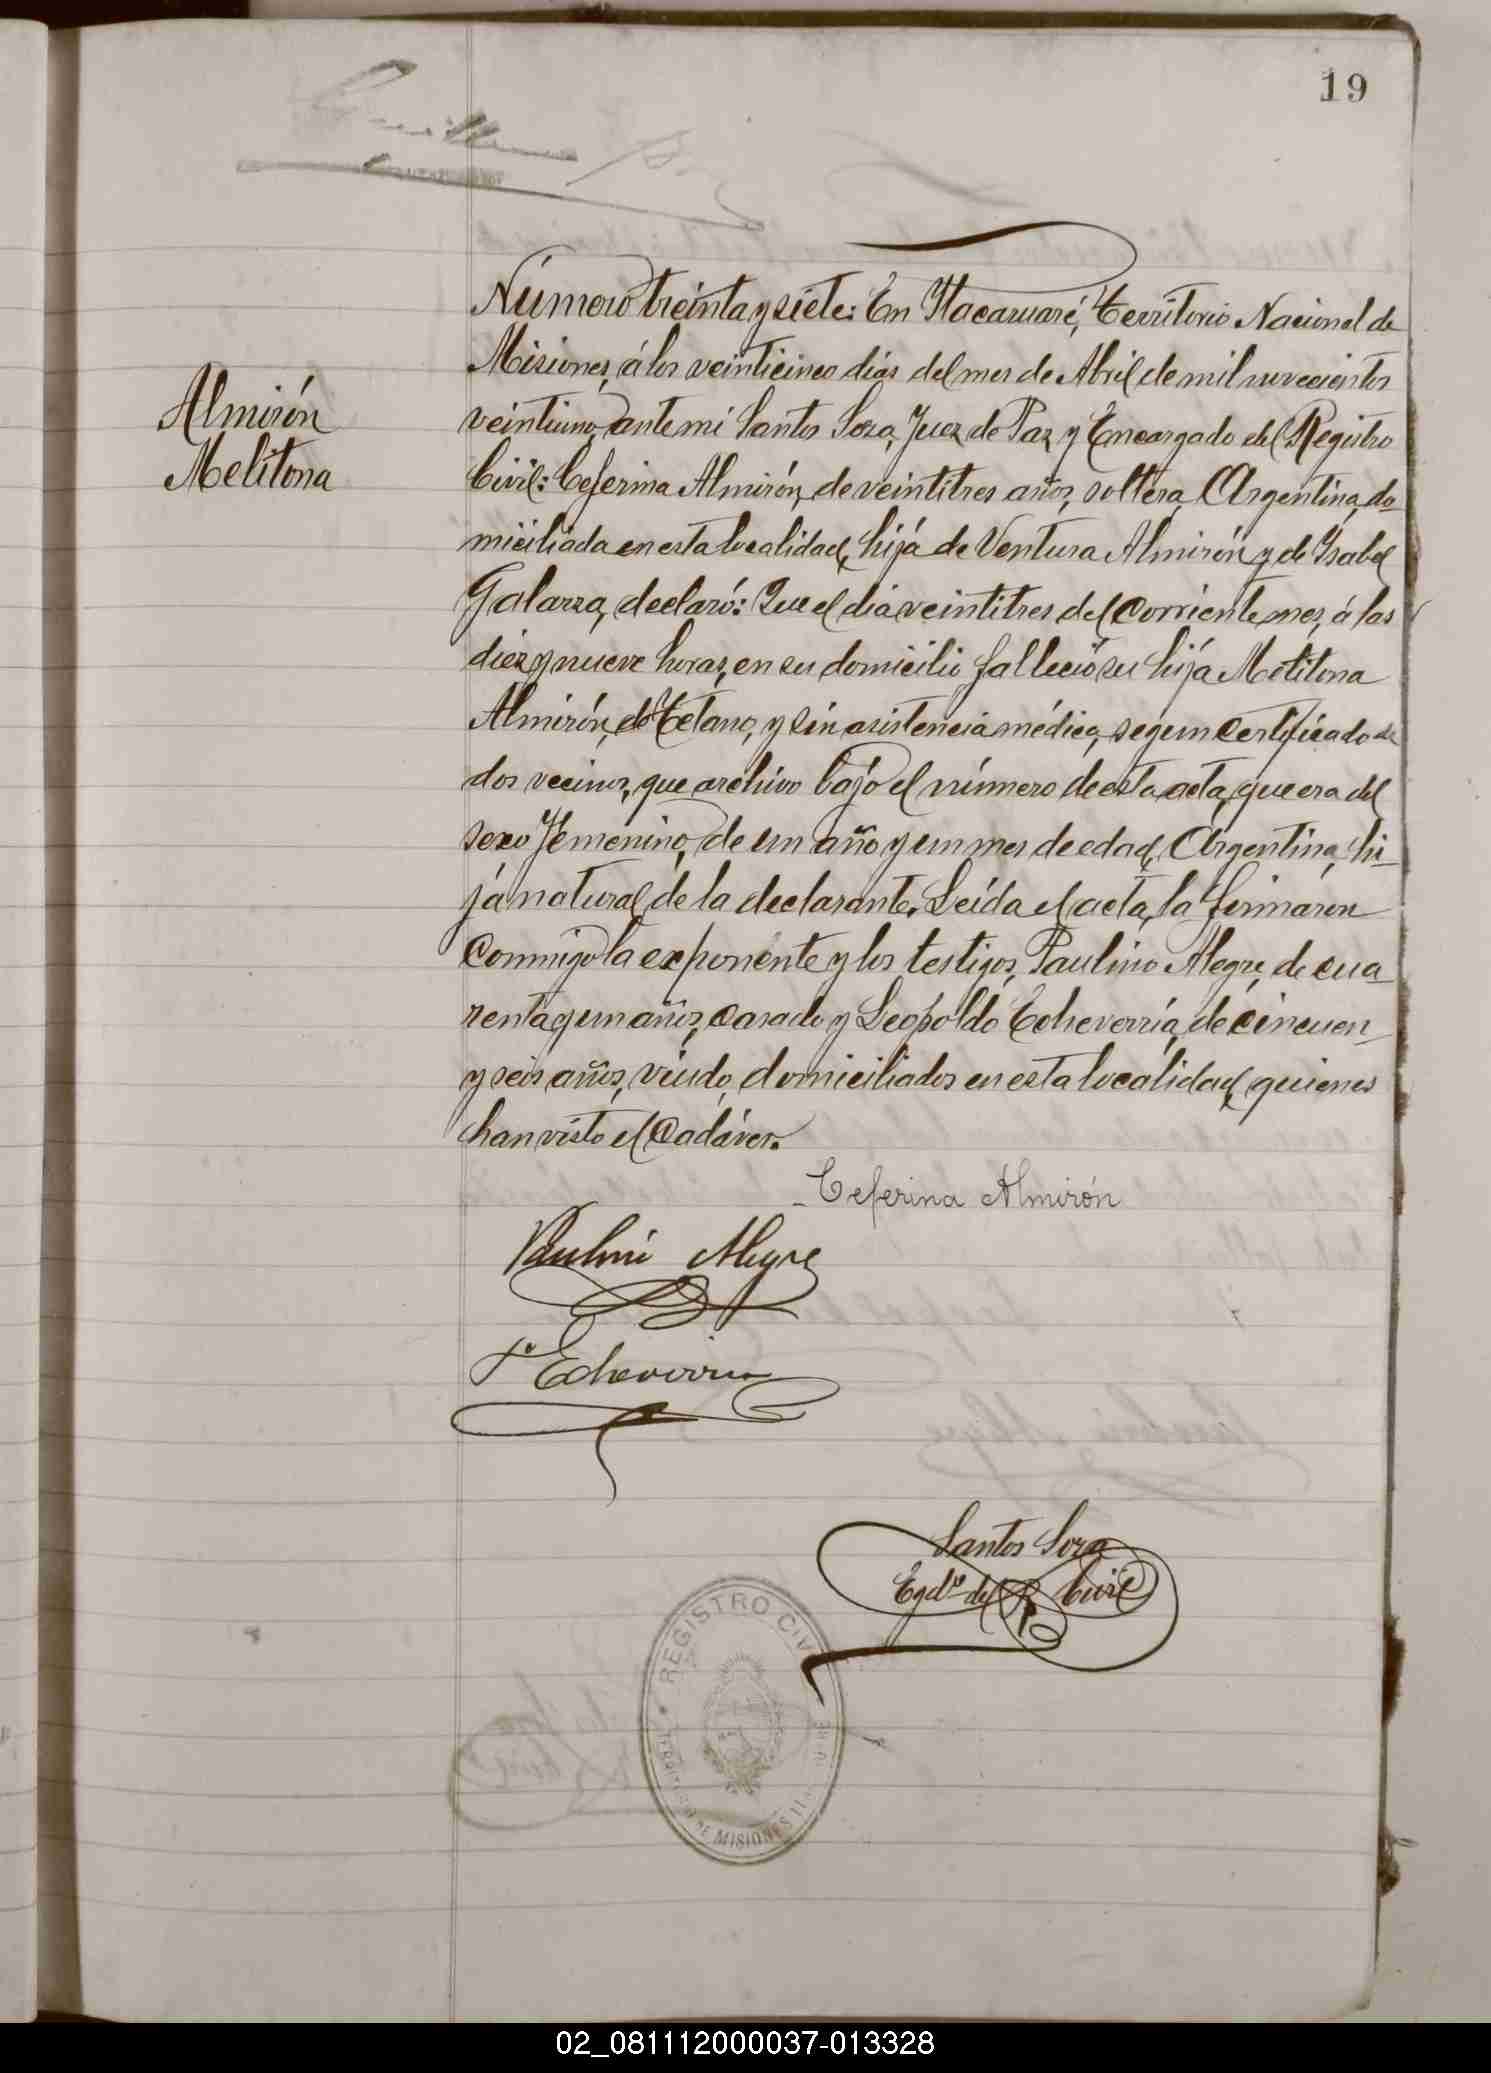 19
Número treinta y siete: En Itacaruaré, Territorio Nacional de
Misiones, á los veinticinco días del mes de Abril de mil novecientos
veintiuno, ante mí Santos Soza, Juez de Paz y Encargado del Registro
Almirón
Melitona
Civil: Ceferina Almirón, de veintitres años, soltera, Argentina, do-
miciliada en esta localidad, hija de Ventura Almirón y de Isabel
Galarza, declaró: Que el día veintitres del corriente mes, á las
diez y nueve horas, en su domicilio falleció su hija Melitona
Almirón, de Tetano, y sin asistencia médica, segun certificado de
dos vecinos, que archivo bajo el número de esta acta, que era del
sexo Femenino, de un año y un mes de edad, Argentina, hi-
ja natural de la declarante. Leída el acta, la firmaron
conmigo la exponente y los testigos, Paulino Alegre, de cua-
renta y un años, casado y Leopoldo Echeverría, de cincuen-
y seis años, viudo, domiciliados en esta localidad, quienes
han visto el Cadáver.
Ceferina Almirón
Paulino Alegre
Echeverria
Santos Soza
Egdo. del R. Civil
REGISTRO CIVIL
TERRITORIO DE MISIONES
02_081112000037-013328